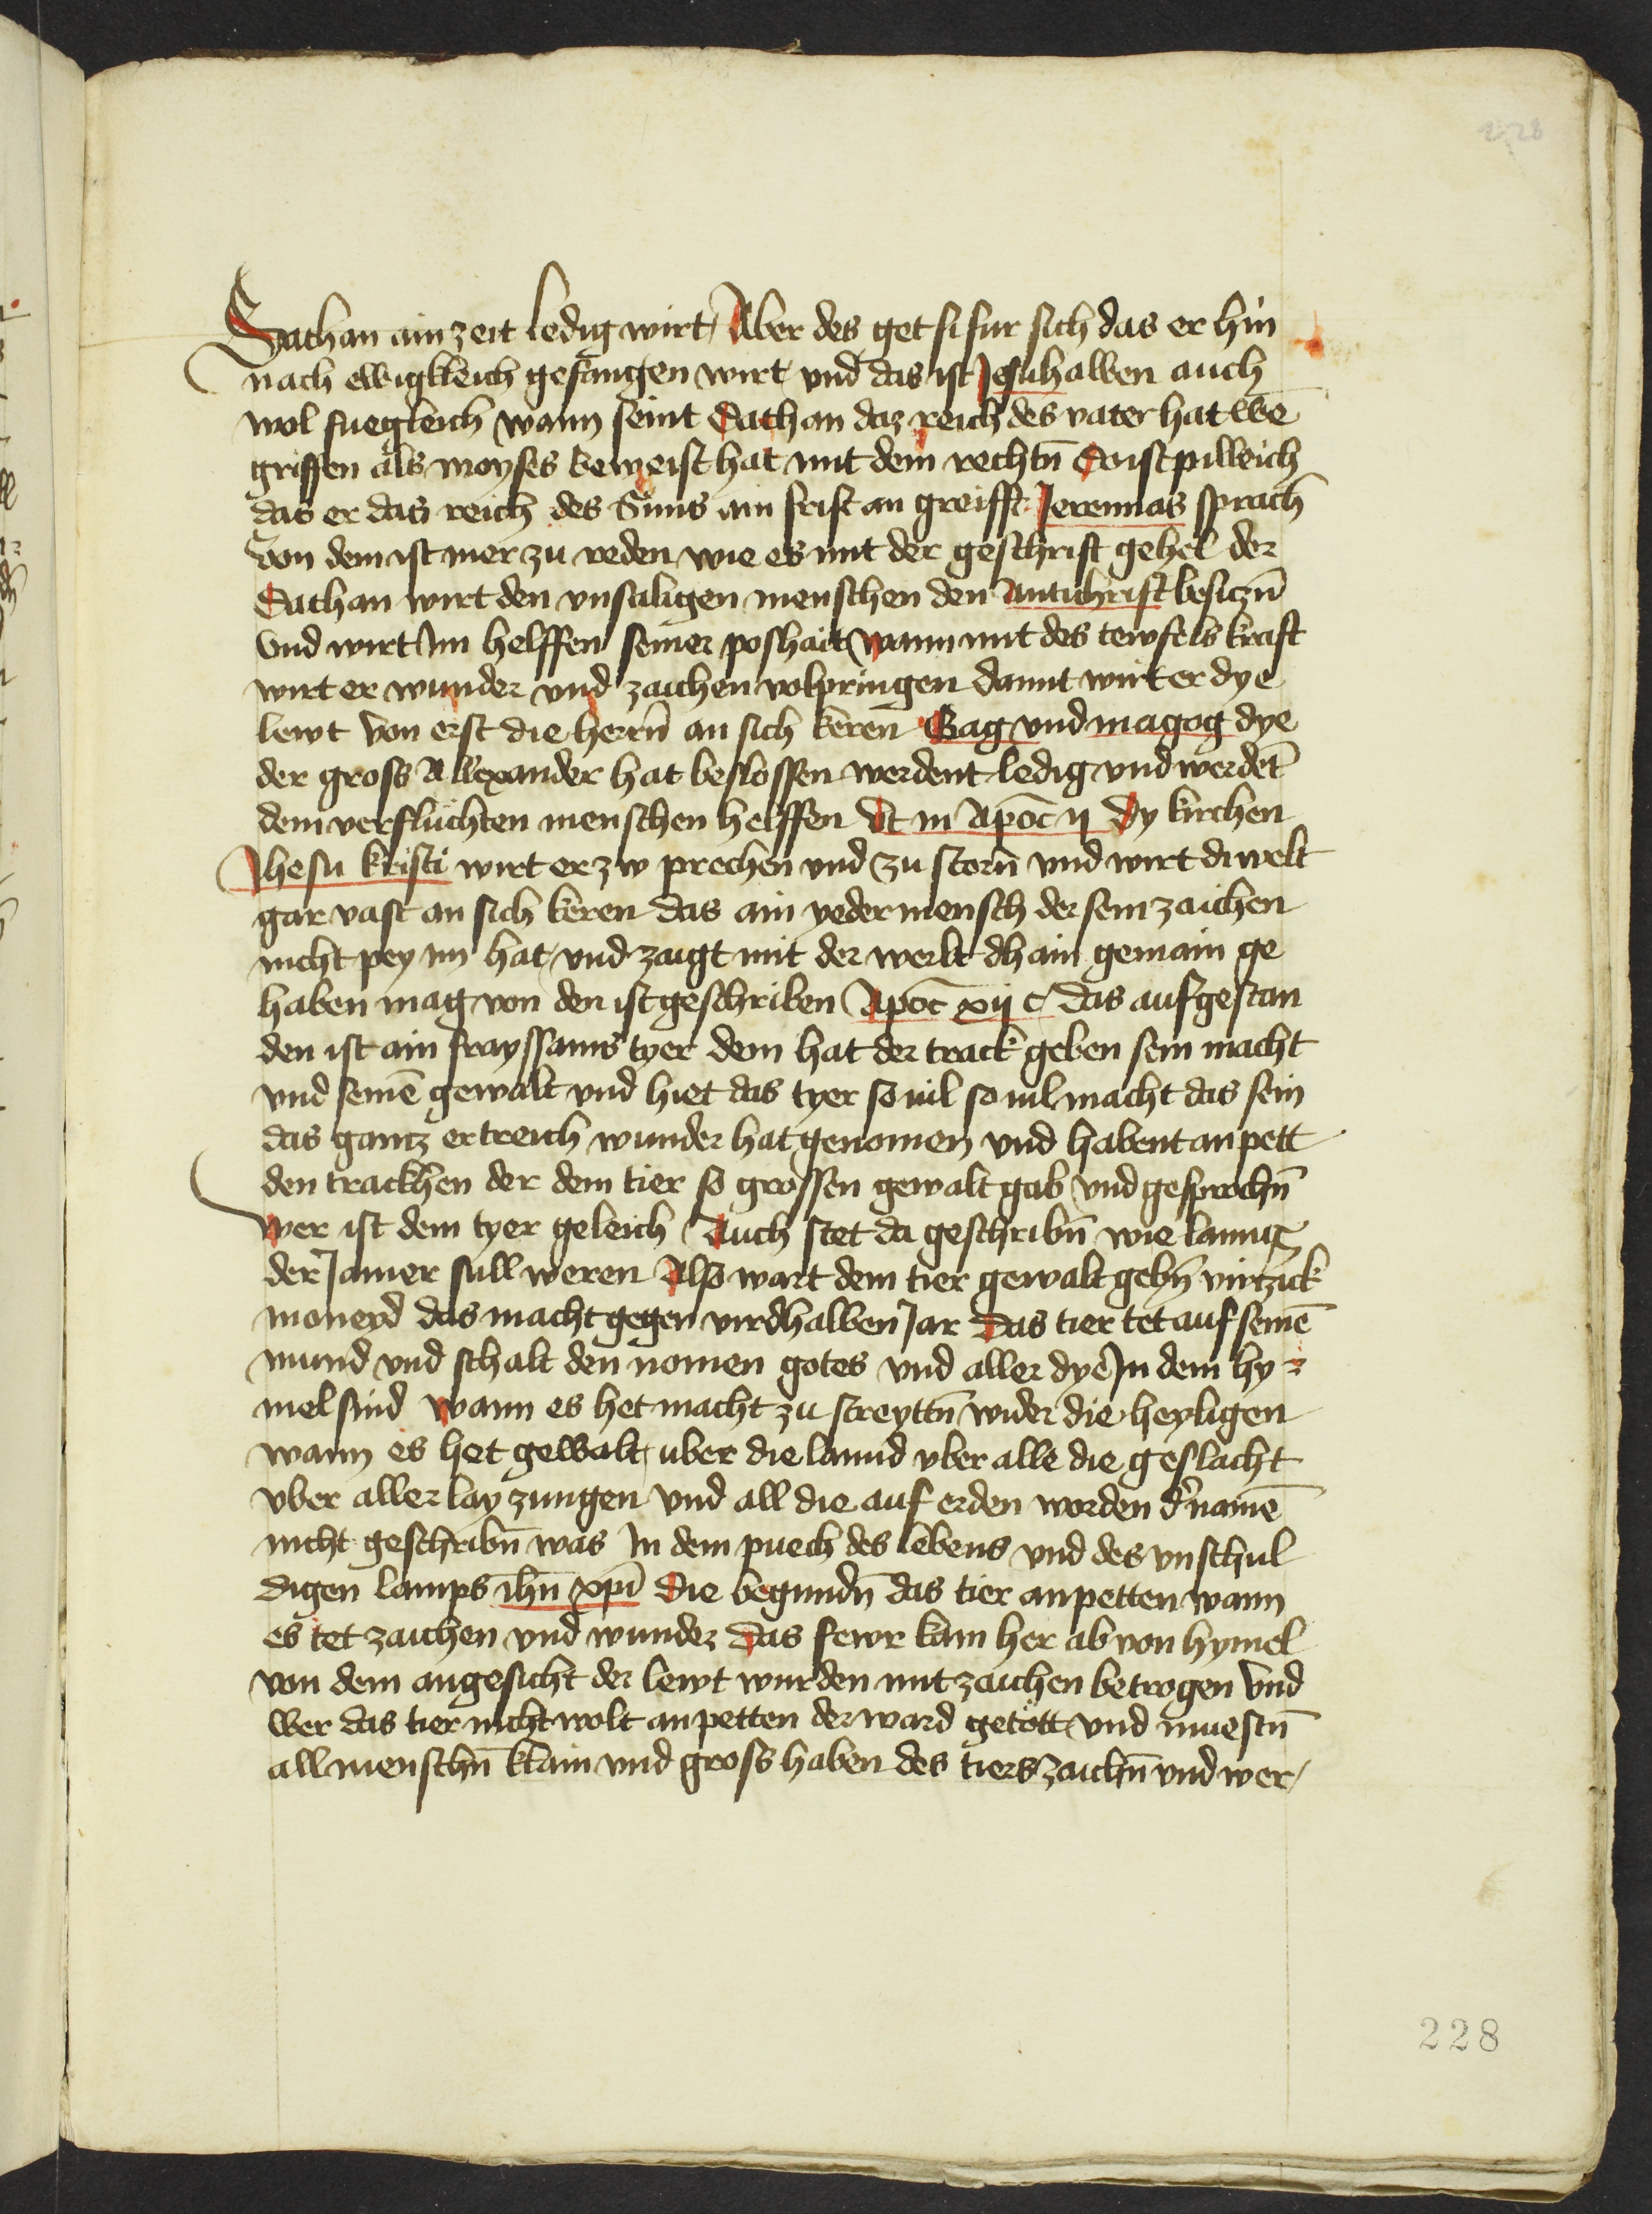 228
Sathan ain zeit ledig wirt Aber des get si fur sich das er hin
nach ewigkleich gefangen wirt vnd das ist Jesuhalben auch
wol fuegleich wann seint Sathan daz reich des vater hat we
griffen als moyses beweist hat mit dem rechtn̄ Do ist pilleich
das er das reich des Suns ain frist an greifft Jeremias sprach
von dem ist mer zu reden wie es mit der geschrift gehel der
Sathan wirt den vnsaligen menschen den Antichrist besiczn̄
vnd wirt Im helffen seiner poshait wann mit des tewfels kraft
wirt er wunder vnd zaichen volpringen damit wirt er dye
lewt von erst die herrn̄ an sich keren Gag vnd magog dye
der gross Allexander hat beslossen werdent ledig vnd werdēt
dem verfluchten menschen helffen Vt in Apoc̄ ij Dy kirchen
Jhesu kristi wirt er zw prechen vnd zu storn̄ vnd wirt di welt
gar vast an sich keren das ain yeder mensch der sein zaichen
nicht pey im hat vnd zaigt mit der werlt dhain gemain ge
haben mag von den ist geschriben Apoc̄ xij c das aufgestan
den ist ain frayssams tyer dem hat der track geben sein macht
vnd seinē gewalt vnd hiet das tyer souil souil macht das sein
das gantz ertreich wunder hat genomen vnd habent an pett
den trackhen der dem tier so grossen gewalt gab vnd gesprochn̄
wer ist dem tyer geleich Auch stet da geschribn̄ wie lanng
der Jamer sull weren Also wart dem tier gewalt gebn̄ virtzick
moneyd das macht gegen virdhalben Jar Das tier tet auf seinē
mund vnd schalt den nomen gotes vnd aller dye In dem hy
mel sind wann es het macht zu streyttn̄ wider die heyligen
wann es het gewalt uber die lannd vber alle die geslacht
vber aller lay zungen vnd all die auf erden worden d' namē
nicht geschribn̄ was In dem puech des lebens vnd des vnschul
digen lamps ihū xpī Die begundn̄ das tier anpetten wann
es tet zaichen vnd wunder Das fewr kam her ab von hymel
von dem angesicht der lewt wurden mit zaichen betrogen vnd
wer das tier nicht wolt anpetten der ward getött vnd muestn̄
all menschn̄ klain vnd gross haben des tiers zaichn̄ vnd wer
228